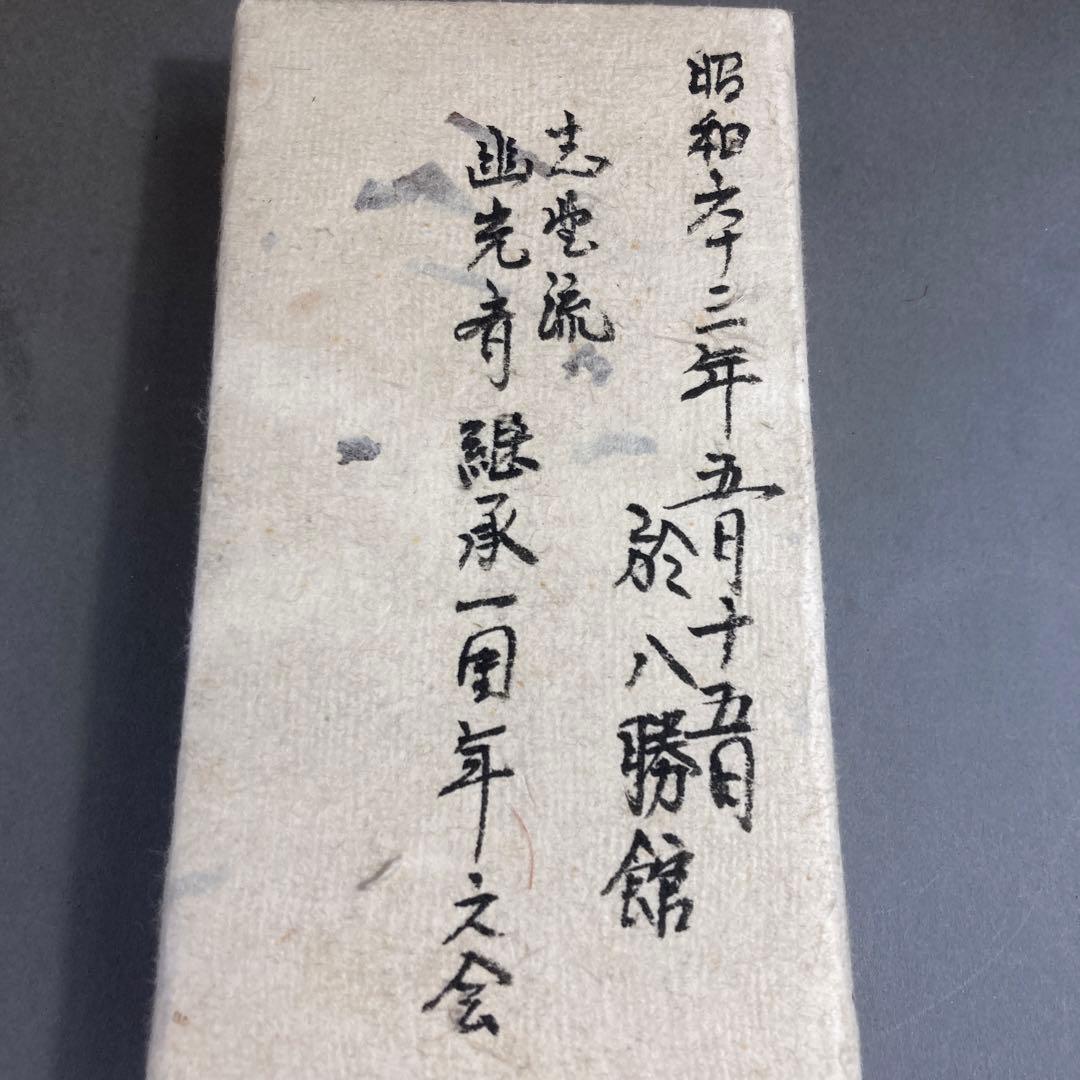 昭和六十三年五月十五日
於 八勝館
志埜流
幽光斎 継承一周年之会